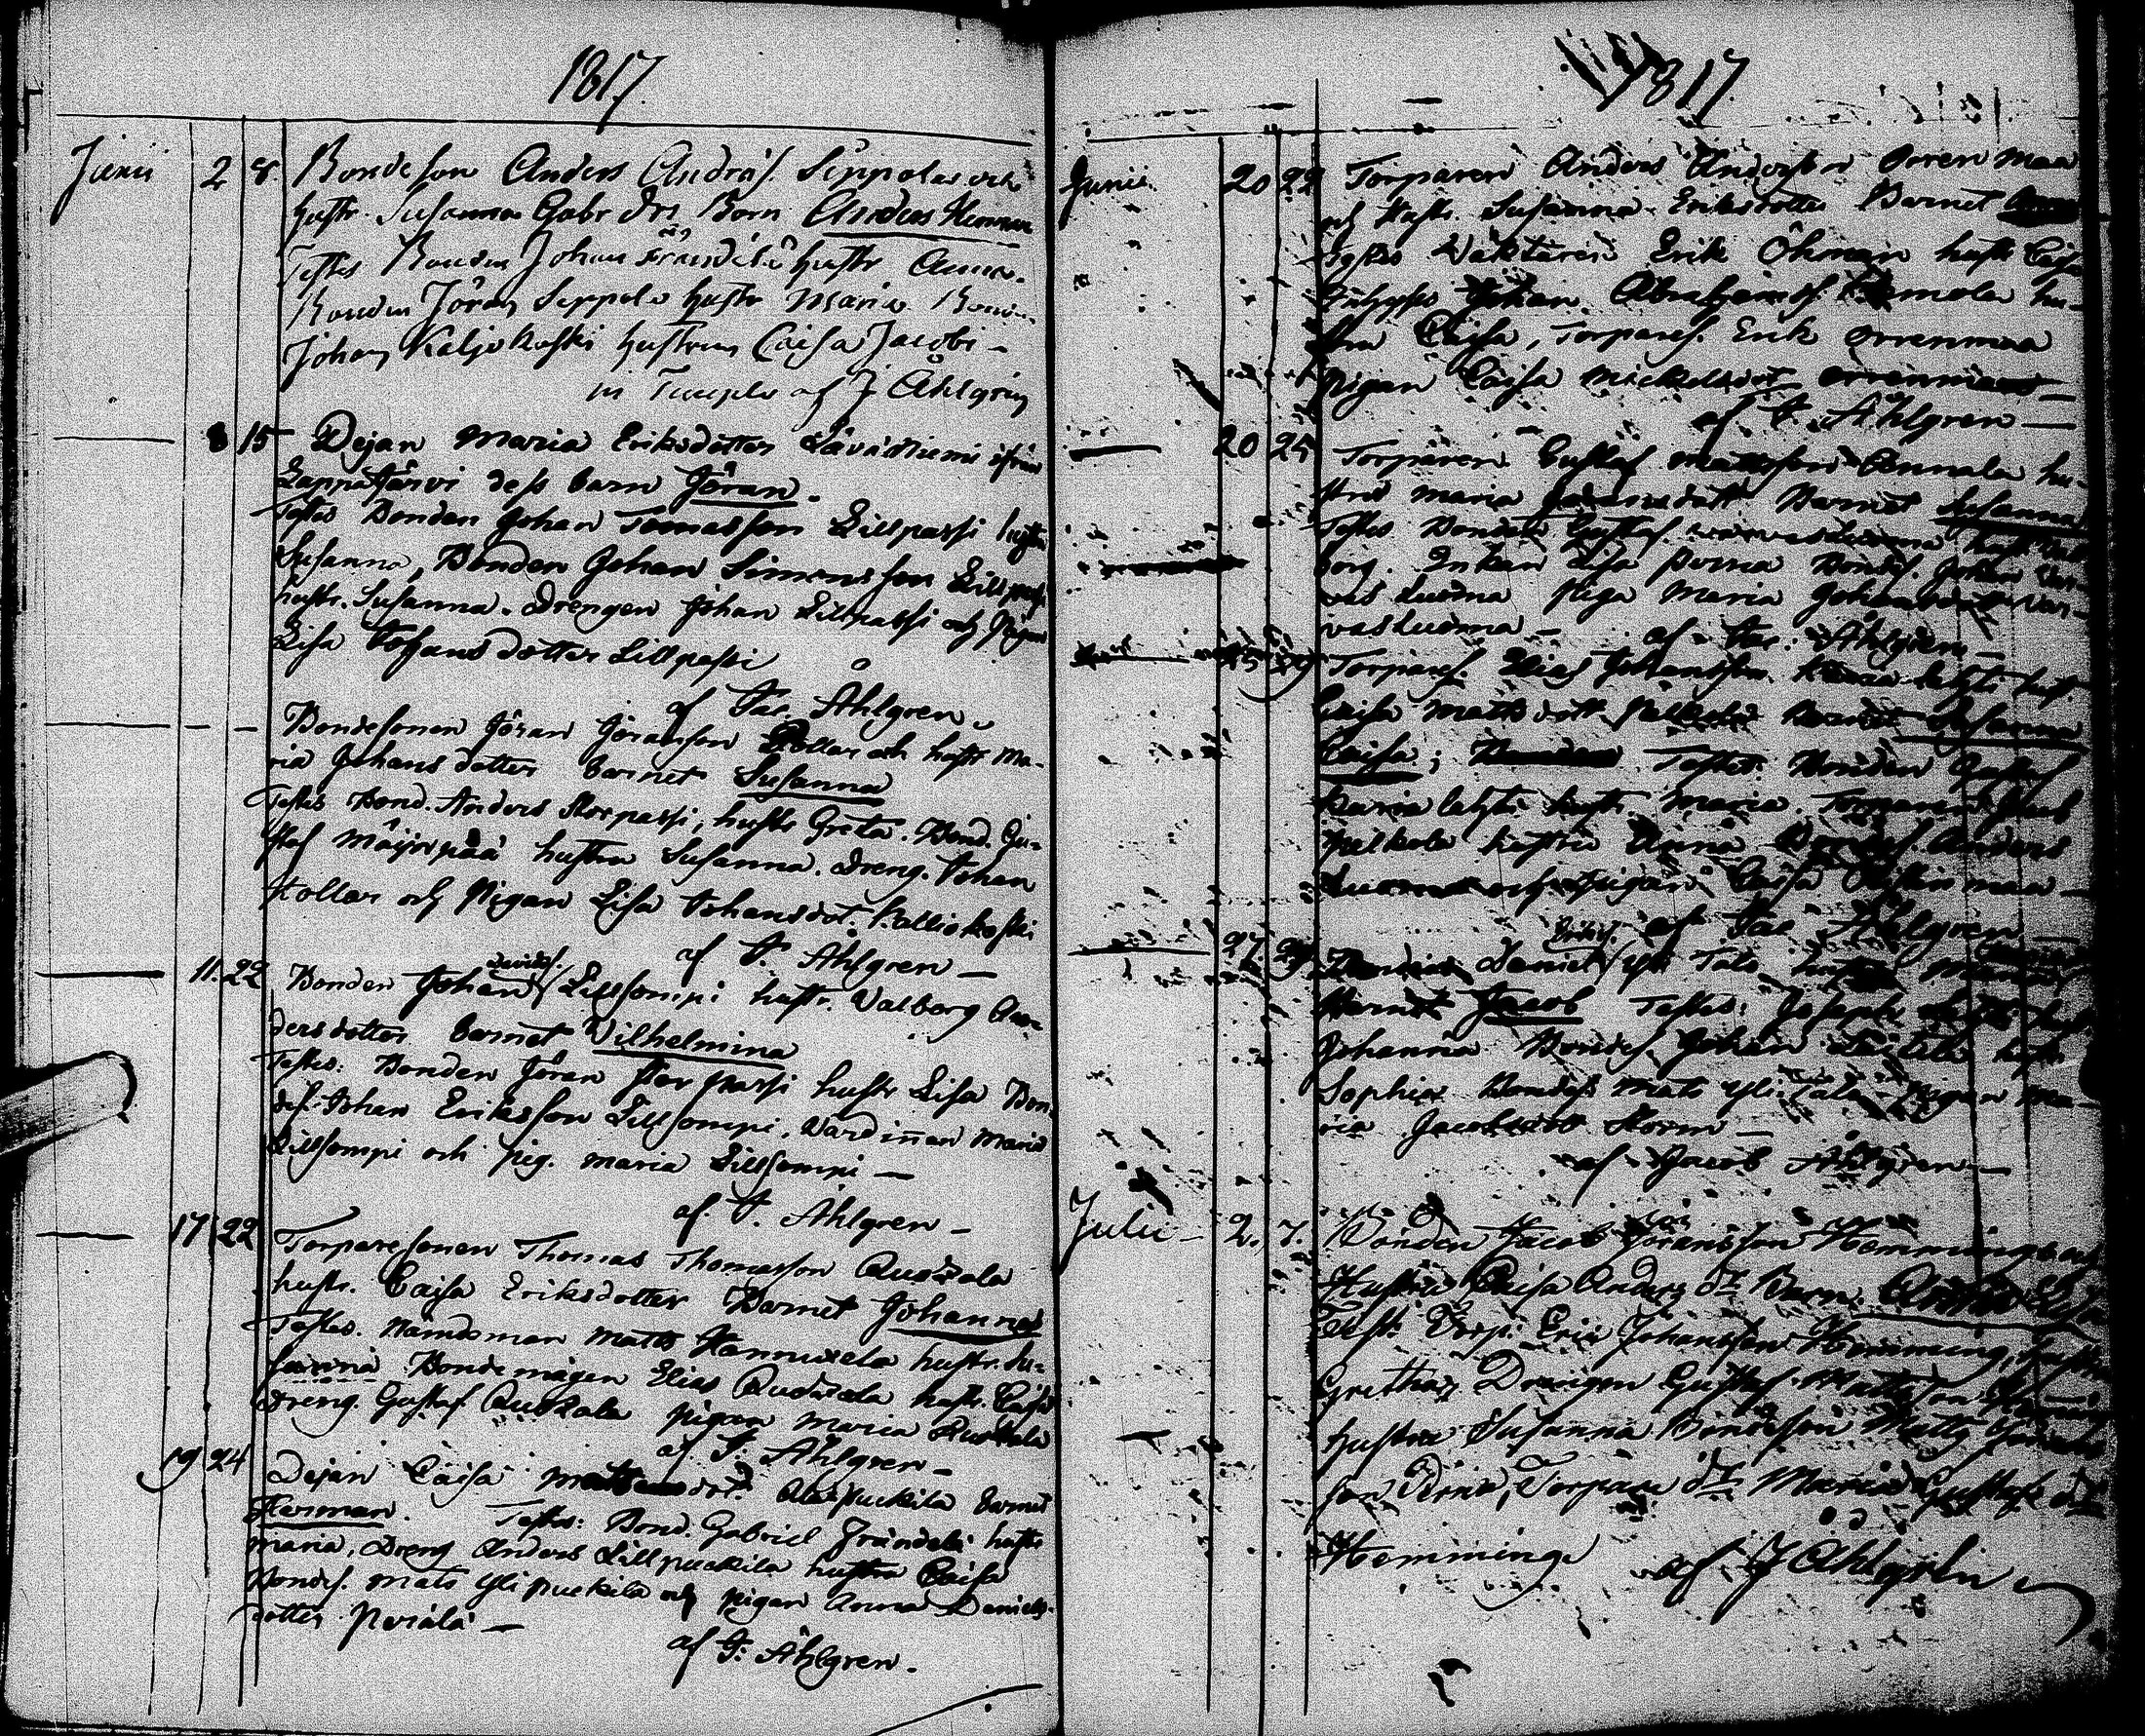 1817.
Junii 2 8. Bondeson Anders Andrs. Seppelas och
hustr. Susanna Gabr drs Born Anders Herman
Testes Bonden Johan Frändilä hustr Anna.
Bonden Jöran Seppele hustr Maria
Johan Kaljokoski hustrun Caisa Jacobi
in Templo af J Åhlgrén
8 15 Dejan Maria Eriksdotter ifrån
Lappajärvi dess barn Jöran.
Testes Bonden Johan Tomasson Lillpassi hustr.
Susanna, Bonden Johan Simonsson Lillpassi
hustr. Susanna. Drengen Johan Lillpassi och Pigan
Lisa Johansdotter Lillpassi
af Jac Åhlgren.
– – Bondesonen Jöran Jöransson Kollar och hustr Ma-
ria Johansdotter barnet Susanna
Testes Bond. Anders Storpassi, hustr Greta. Bond. Gu-
staf Möijerpää hustru Susanna. Dreng. Johan
Kollar och Pigan Lisa Johansdot. Kalliokoski
af J. Åhlgren –
11. 22 Bonden Johan Davids. Lillsompi hustr. Valborg An-
dersdotter barnet Vilhelmina
Testes: Bonden Jöran Storpassi hustr Lisa Bon-
des. Johan Eriksson Lillsompi, Värdinnan Maria
Lillsompi och pig. Maria Lillsompi –
af J. Åhlgren –
17 22 Torparesonen Thomas Thomasson Ruokala
hustr. Caisa Eriksdotter Barnet Johannes
Testes. Nämdeman Matts Hannuxela hustr. Su-
sanna Bondemågen Elias Ruokala hustr. Caisa
Dreng. Gustaf Ruokala pigan Maria Ruokala
af J. Åhlgren –
19 24 Dejan Caisa Matts dot. Alapuckila barnet
Herman. Testes: Bond. Gabriel Frändilä hustr
Maria, Dreng Anders Lillpuckila hustru Caisa
Bondes. Mats Ylipuckila och pigan Anna Daniels-
dotter Perälä –
af J: Åhlgren.
1817.
Junii 20 22 Torparen Anders Anderson Orrenmaa
och hustr. Susanna Eriksdotter Barnet
Testes Väktaren Erik Öhman hustr Caisa
Johan Abrahams. hu-
stru Caisa, Torpares. Erik Orrenmaa
Pigan Caisa Mickelsdot Orrenmaa –
af J. Åhlgren –
20 25 Torparen Gustaf Mattsson Annala hu-
stru Maria dott Barnet Susanna
Testes Gustaf Varvasluoma hustr Val-
borg. Enkan Lisa Bondes. Johan Var-
vasluoma Piga Maria Var-
vasluoma – af Jac: Åhlgren –
Torpares. Elias Johansson hust
Caisa Matts dott Barnet Susanna
Caisa; Testes: Bonden Gustaf
hustr. Maria. Torparen
Pelkola hustru Anna Anders
Luoma och pigan Caisa
af Jac Åhlgren –
27. 29 Daniel Eriks. Yli Talo hustr Maria
Barnet Jacob Testes: Joseph hust
Johanna Bondes. Johan hustr
Sophia Bondes Mats Yli Talo Pigan Ma-
ria Jacobsdot Storm –
af Jacob Åhlgren –
Julii – 2. 7. Bonden Jacob Jöransson Hemminge och
Hustru Caisa Anders dr Barn:
Test. Torp: Eric Johansson Hemming, hustru
Gretha, Drengen Gustaf Mattsson
hustru Susanna Bondeson Matts
son Torpare dr Maria Gustafs dr
Hemminge af J Åhlgrén